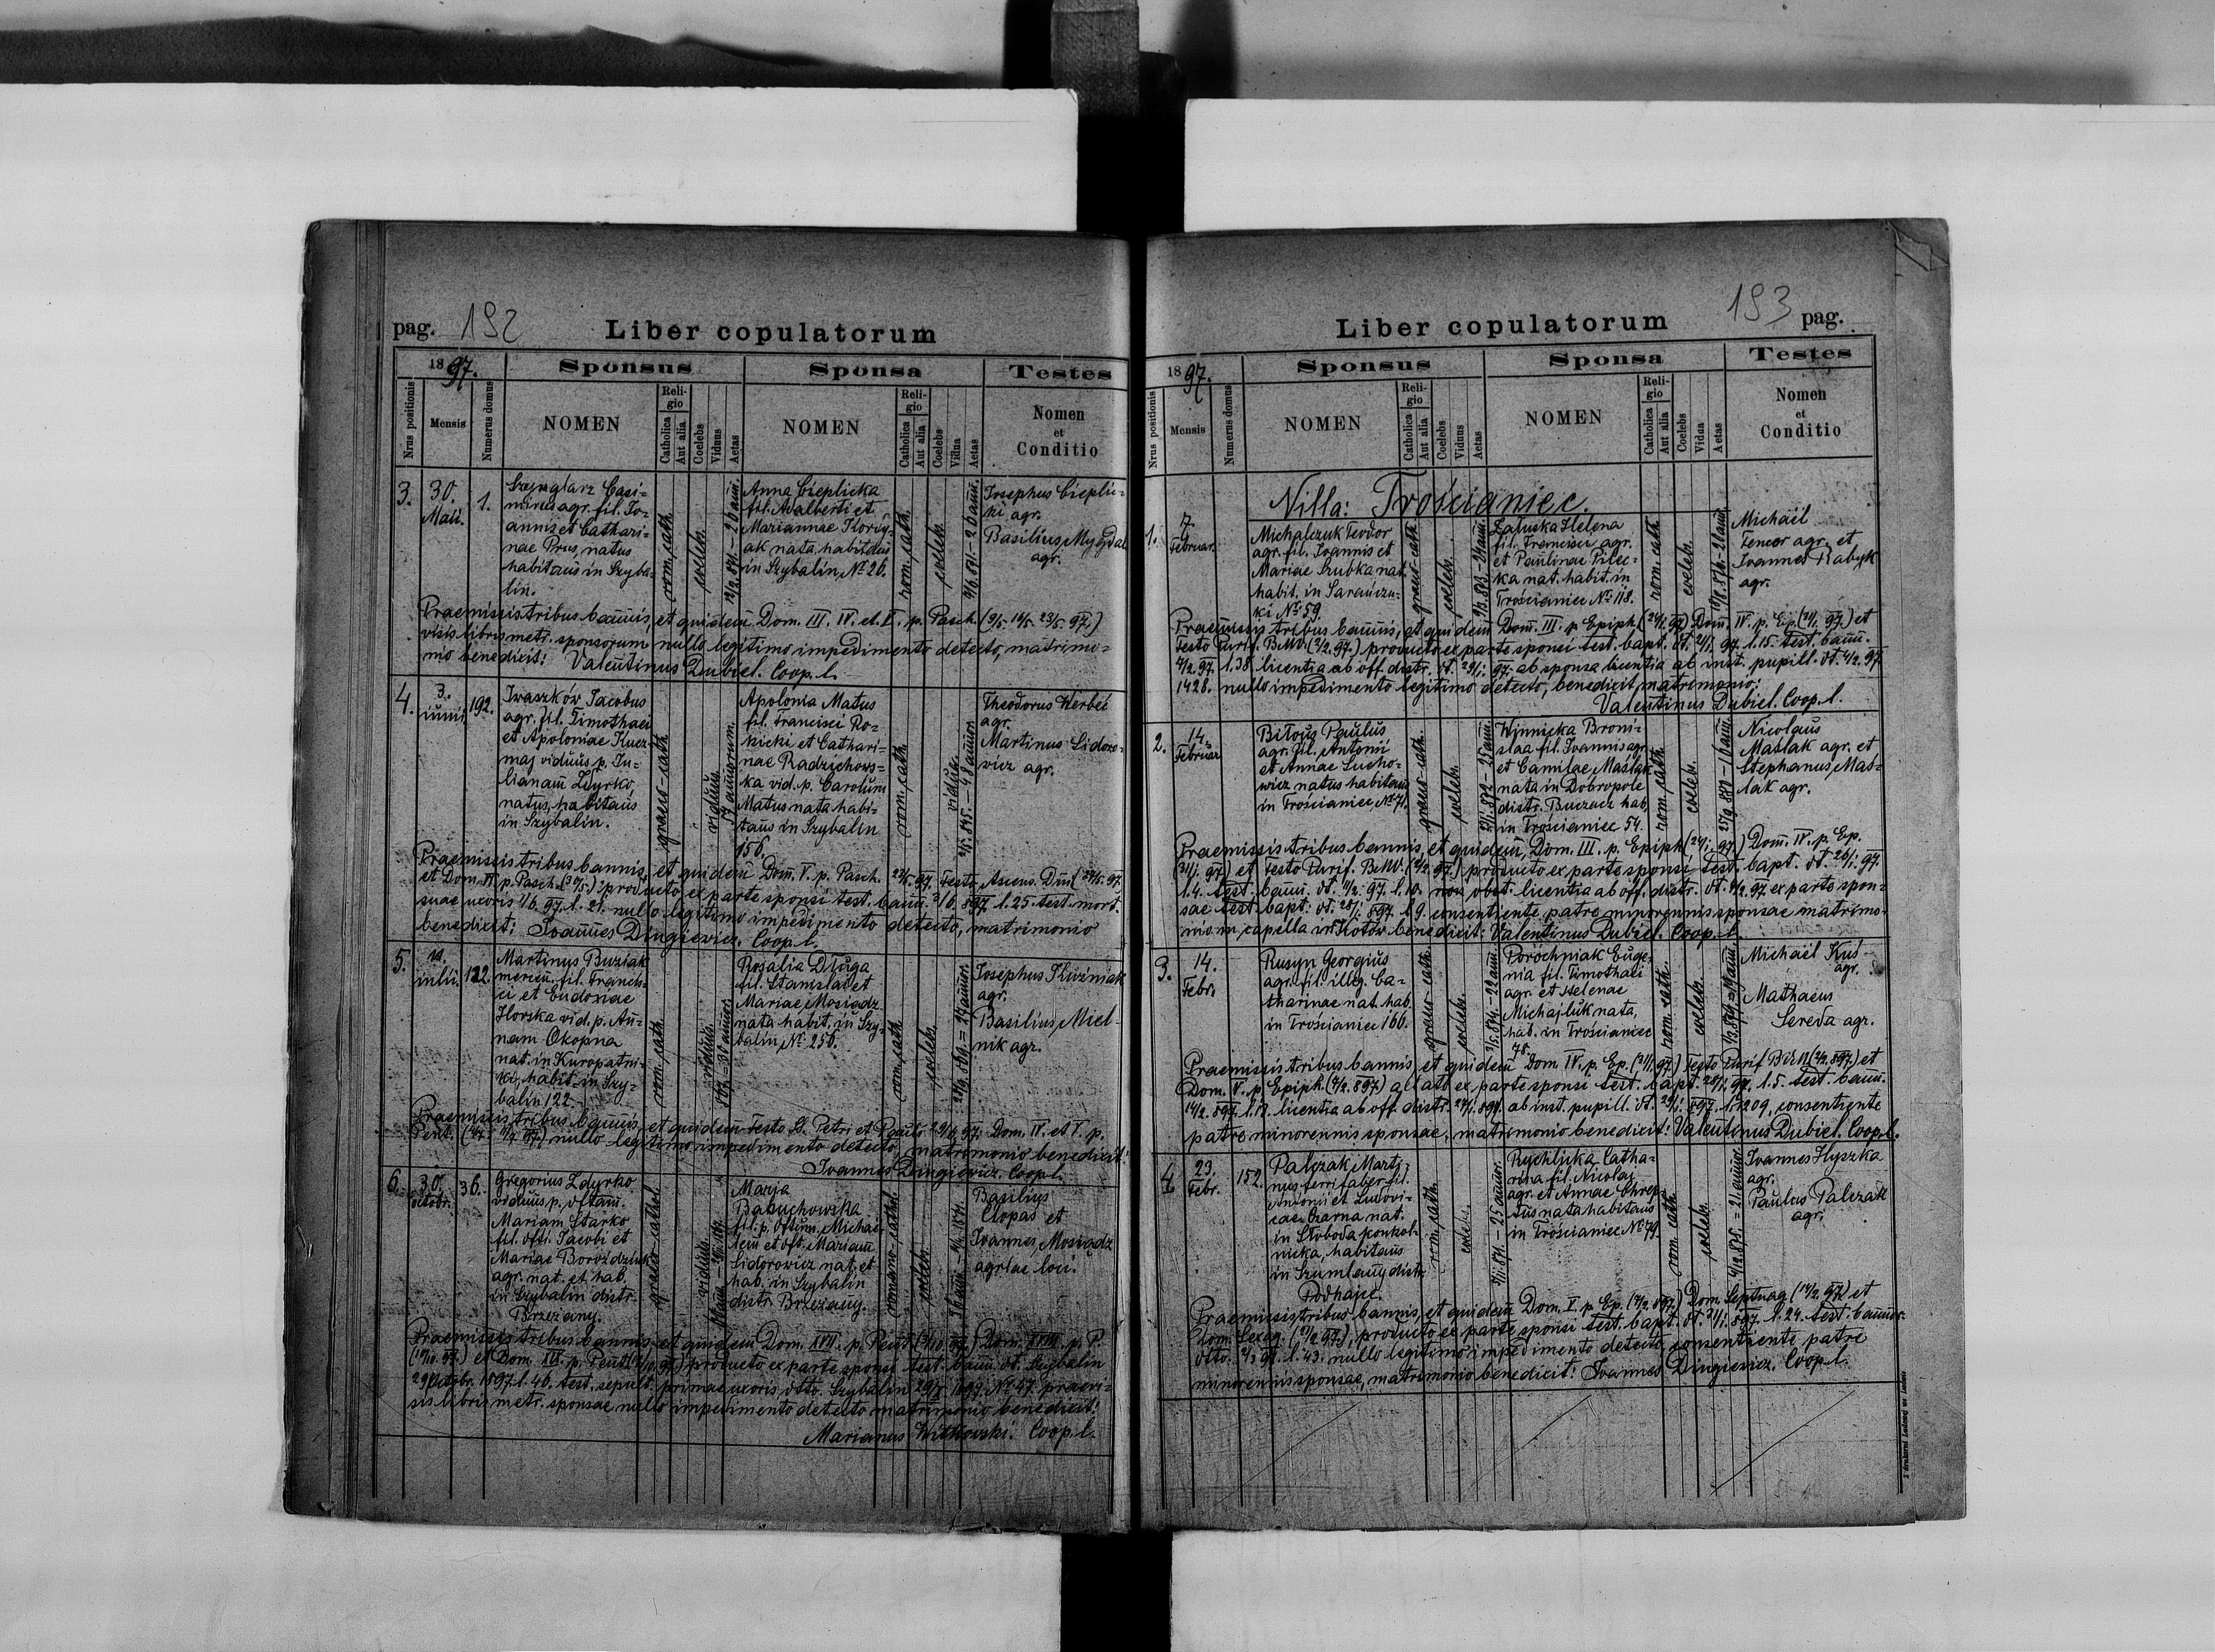 pag. 192
Liber copulatorum
1897.
Sponsus
Sponsa
Testes
Nrus positionis
Mensis
Numerus domus
NOMEN
Religio
Catholica
Aut alia
Coelebs
Viduus
Aetas
NOMEN
Religio
Catholica
Aut alia
Coelebs
Vidua
Aetas
Nomen
et
Conditio
3.
30.
Maii.
1.
agr. fil. Jo-
annis et Cathari-
nae Prus, natus
habitans in Szyba-
lin.
rom. cath.
coeleb.
Anna Cieplicka
fil. Adalberti et
Mariannae
nata habitans
in Szybalin, № 26.
rom. cath.
coeleb.
Josephus Cieplic-
ki agr.
Basilius
agr.
Praemissis tribus bannis, et quidem Dom. III. IV. et V. p. Pasch. (9/5. 16/5. 23/5. 97.)
visis libris metr. sponsorum nullo legitimo impedimento detecto, matrimo-
nio benedicit: Valentinus Dubiel. Coop. l.
4.
3.
iunii
192.
Iwaszków Jacobus
agr. fil. Timothaei
et Apoloniae Kucz-
maj viduus p. Ju-
lianam Zdyrko,
natus, habitans
in Szybalin.
graeco-cath.
viduus
Apolonia Matus
fil. Francisci Ro-
kicki et Cathari-
nae Radzichows-
ka vid. p. Carolum
Matus nata habi-
tans in Szybalin
156.
rom. cath.
vidua.
Theodorus Kerbeć
agr.
Martinus Sidoro-
wicz agr.
Praemissis tribus bannis, et quidem Dom. V. p. Pasch. 23/5. 97. Festo Ascens. Dni (27/5. 97.
et Dom. VI. p. Pasch. (30/5.) producto ex parte sponsi test. bann. 897. l. 25. test. mort.
suae uxoris 1/6. 97. l. 21. nullo legitimo impedimento detecto, matrimonio
benedicit: Joannes Dingiewicz. Coop. l.
5.
iulii
122.
Martinus Buziak
fil. Francis-
ci et Eudoxiae
Horska vid. p. An-
nam Okopna
nat. in Kuropatni-
ki, habit. in Szy-
balin 122.
rom. cath.
viduus.
Rosalia Długa
fil. Stanislai et
Mariae Mosiądz
nata habit. in Szy-
balin, № 250.
rom. cath.
coeleb.
Josephus Kuźniak
agr.
Basilius Miel-
nik agr.
Praemissis tribus bannis, et quidem Festo S. Petri et Pauli 29/6. 97. Dom. IV. et V. p.
Pent. nullo legitimo impedimento detecto, matrimonio benedicit:
Joannes Dingiewicz. Coop. l.
6.
30.
octobr.
36.
Gregorius Zdyrko
viduus p. dftam.
Mariam Starko
fil. dfti. Jacobi et
Mariae Borozdziuk
agr. nat. et hab.
in Szybalin distr.
Brzezany.
graeco cathol.
viduus.
Marja
Babuchowska
fil. p. dftum. Michae-
lem et dft. Mariam
Sidorowicz nat. et
hab. in Szybalin
distr. Brzezany.
romano-cathol.
coeleb.
Basilius
Clopas et
Joannes Mosiądz
agrlae loci.
Praemissis tribus bannis et quidem Dom. XVII. p. Pent. Dom. XVIII. p. P.
et Dom. XIX. p. Pent. producto ex parte sponsi test. bann. dt. Szybalin
1897 l. 46. test. sepult. primae uxoris dtto. Szybalin 1897 № 47. praevi-
sis libris metr. sponsae nullo impedimento detecto matrimonio benedicit:
Marianus Witkowski. Coop. l.
193 pag.
Liber copulatorum
1897.
Sponsus
Sponsa
Testes
Nrus positionis
Mensis
Numerus domus
NOMEN
Religio
Catholica
Aut alia
Coelebs
Viduus
Aetas
NOMEN
Religio
Catholica
Aut alia
Coelebs
Vidua
Aetas
Nomen
et
Conditio
Villa: Trościaniec.
1.
7.
Februar.
Michalczuk Teodor
agr. fil. Joannis et
Mariae Szubka nat.
habit. in Sarańczu-
ki № 59.
graeco-cath.
coeleb.
Załuska Helena
fil. Francisci agr.
et Paulinae Pilec-
ka nat. habit. in
Trościaniec № 118.
rom. cath.
coeleb.
Michaël
Fencor agr. et
Joannes Rabyk
agr.
Praemissis tribus bannis, et quidem Dom. III. p. Epiph. (24/1. 97.) Dom. IV. p. Ep. (31/1. 97.) et
Festo Purif. B.M.V. (2/2. 97.) producto ex parte sponsi test. bapt. dt. 97. l. 15. test. bann.
97. l. 38. licentia ab off. distr. dt. 97. ab sponsa licentia ab inst. pupill. dt. 97.
1428. nullo impedimento legitimo detecto, benedicit matrimonio:
Valentinus Dubiel. Coop. l.
2.
14.
Februar
Biłous Paulus
agr. fil. Antonii
et Annae Sucho-
wicz natus habitans
in Trościaniec № 71.
graeco-cath.
coeleb.
Winnicka Broni-
slaa fil. Joannis agr.
et Camilae Maślak
nata in Dobropole
distr. Buczacz hab.
in Trościaniec 54.
rom. cath.
coeleb.
Nicolaus
Maślak agr. et
Stephanus Maś-
lak agr.
Praemissis tribus bannis, et quidem, Dom. III. p. Epiph. (24/1. 97.) Dom. IV. p. Ep.
(31/1. 97.) et Festo Purif. B.M.V. (2/2. 97.) producto ex parte sponsi test. bapt. dt. 97.
l. 4. test. bann. dt. 97. l. 10. non obst. licentia ab off. distr. dt. 97 ex parte spon-
sae test. bapt. dt. 897. l. 9. consentiente patre minorennis sponsae matrimo-
nio in capella in Kotów benedicit: Valentinus Dubiel. Coop. l.
3.
14.
Febr.
Rusyn Georgius
agr. fil. illeg. Ca-
tharinae nat. hab.
in Trościaniec 166.
graeco cath.
coeleb.
Porochniak Euge-
nia fil. Timothaei
agr. et Helenae
Michajluk nata,
hab. in Trościaniec
78.
rom. cath.
coeleb.
Michaël Kuś
agr.
Mathaeus
Sereda agr.
Praemissis tribus bannis, et quidem Dom. IV. p. Ep. (31/1. 97.) Festo Purif. B.V.M. (2/2. 897.) et
Dom. V. p. Epiph. (7/2. 897.) allato ex parte sponsi test. bapt. 97. l. 5. test. bann.
897. l. 12. licentia ab off. distr. 897. ab inst. pupill. dt. 897. consentiente
patre minorennis sponsae, matrimonio benedicit: Valentinus Dubiel. Coop. l.
4
23.
Febr.
152.
Palczak Marti-
nus ferri faber fil.
Antonii et Ludovi-
cae Czarna nat.
in Słoboda konkol-
nicka, habitans
in Szumlany distr.
Podhajce.
rom. cath.
coeleb.
Rychlicka Catha-
rina fil. Nicolai
agr. et Annae Chrep-
tus nata habitans
in Trościaniec № 79.
rom. cath.
coeleb.
Joannes Hyszka
agr.
Paulus Palczak
agr.
Praemissis tribus bannis, et quidem Dom. V. p. Ep. (7/2. 897.) Dom. Septuag. (14/2. 97.) et
Dom. Sexag. (21/2. 97.), producto ex parte sponsi test. bapt. dt. 897. l. 24. test. bannor.
dtto. 97. l. 43. nullo legitimo impedimento detecto, consentiente patre
minorennis sponsae, matrimonio benedicit: Joannes Dingiewicz. Coop. l.